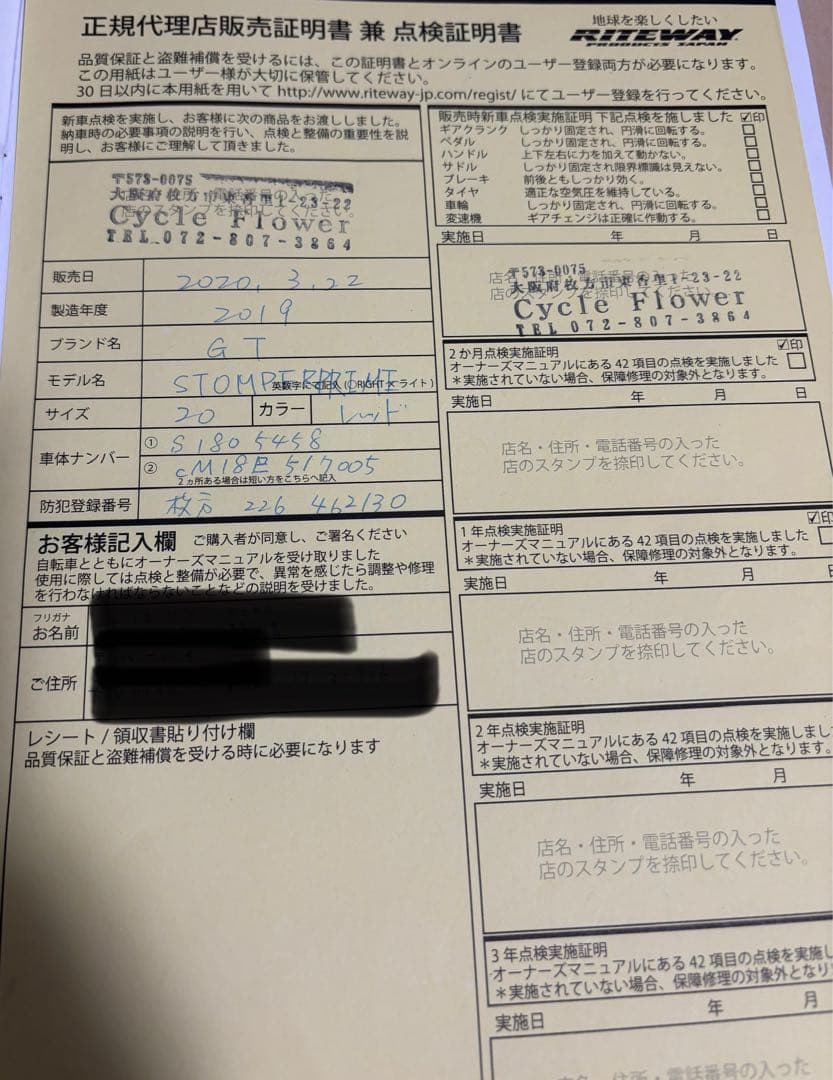 正規代理店販売証明書 兼 点検証明書
地球を楽しくしたい
RITEWAY
PRODUCTS JAPAN
品質保証と盗難補償を受けるには、この証明書とオンラインのユーザー登録両方が必要になります。
この用紙はユーザー様が大切に保管してください。
30日以内に本用紙を用いて http://www.riteway-jp.com/regist/ にてユーザー登録を行ってください。
新車点検を実施し、お客様に次の商品をお渡ししました。
納車時の必要事項の説明を行い、点検と整備の重要性を説
明し、お客様にご理解して頂きました。
〒573-0075
大阪府枚方市東香里1-23-22
Cycle Flower
TEL 072-807-3864
販売日 2020. 3. 22
製造年度 2019
ブランド名 GT
モデル名 STOMPERPRIME
英数字にて記入 (○RIGHT ×ライト)
サイズ 20 カラー レッド
車体ナンバー ① S1805458
② CM18E517005
2ヵ所ある場合は短い方をこちらへ記入
防犯登録番号 枚方 226 462130
お客様記入欄 ご購入者が同意し、ご署名ください
自転車とともにオーナーズマニュアルを受け取りました
使用に際しては点検と整備が必要で、異常を感じたら調整や修理
を行わなければならないことなどの説明を受けました。
フリガナ
お名前
ご住所
レシート / 領収書貼り付け欄
品質保証と盗難補償を受ける時に必要になります
販売時新車点検実施証明 下記点検を施しました ☑印
ギアクランク しっかり固定され、円滑に回転する。
ペダル しっかり固定され、円滑に回転する。
ハンドル 上下左右に力を加えて動かない。
サドル しっかり固定され限界標識は見えない。
ブレーキ 前後ともしっかり効く。
タイヤ 適正な空気圧を維持している。
車輪 しっかり固定され、円滑に回転する。
変速機 ギアチェンジは正確に作動する。
実施日 年 月 日
〒573-0075
大阪府枚方市東香里1-23-22
Cycle Flower
TEL 072-807-3864
2か月点検実施証明 ☑印
オーナーズマニュアルにある 42 項目の点検を実施しました
＊実施されていない場合、保障修理の対象外となります。
実施日 年 月 日
店名・住所・電話番号の入った
店のスタンプを捺印してください。
1年点検実施証明 ☑印
オーナーズマニュアルにある 42 項目の点検を実施しました
＊実施されていない場合、保障修理の対象外となります。
実施日 年 月 日
店名・住所・電話番号の入った
店のスタンプを捺印してください。
2年点検実施証明
オーナーズマニュアルにある 42 項目の点検を実施しまし
＊実施されていない場合、保障修理の対象外となります。
実施日 年 月
店名・住所・電話番号の入った
店のスタンプを捺印してください。
3年点検実施証明
オーナーズマニュアルにある 42 項目の点検を実施し
＊実施されていない場合、保障修理の対象外となり
実施日 年 月
店名・住所・電話番号の入った